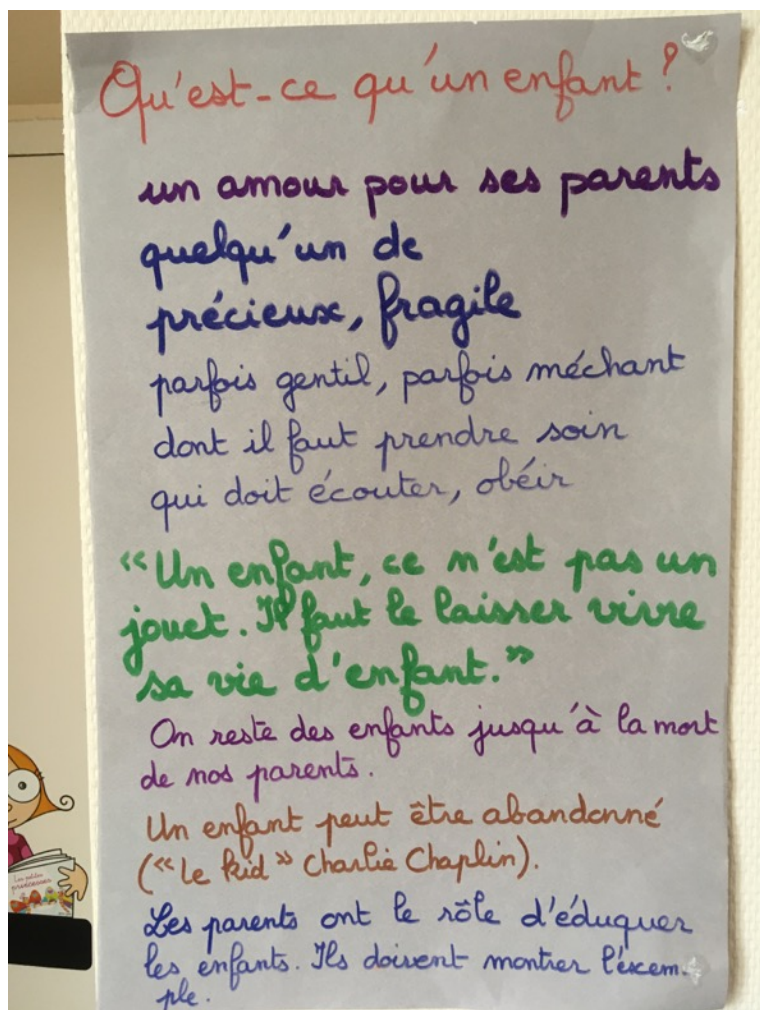 Qu'est-ce qu'un enfant ?
un amour pour ses parents
quelqu'un de
précieux, fragile
parfois gentil, parfois méchant
dont il faut prendre soin
qui doit écouter, obéir
"Un enfant, ce n'est pas un
jouet. Il faut le laisser vivre
sa vie d'enfant."
On reste des enfants jusqu'à la mort
de nos parents.
Un enfant peut être abandonné
("Le Kid" Charlie Chaplin).
Les parents ont le rôle d'éduquer
les enfants. Ils doivent montrer l'exem-
ple.
Les petites
princesses